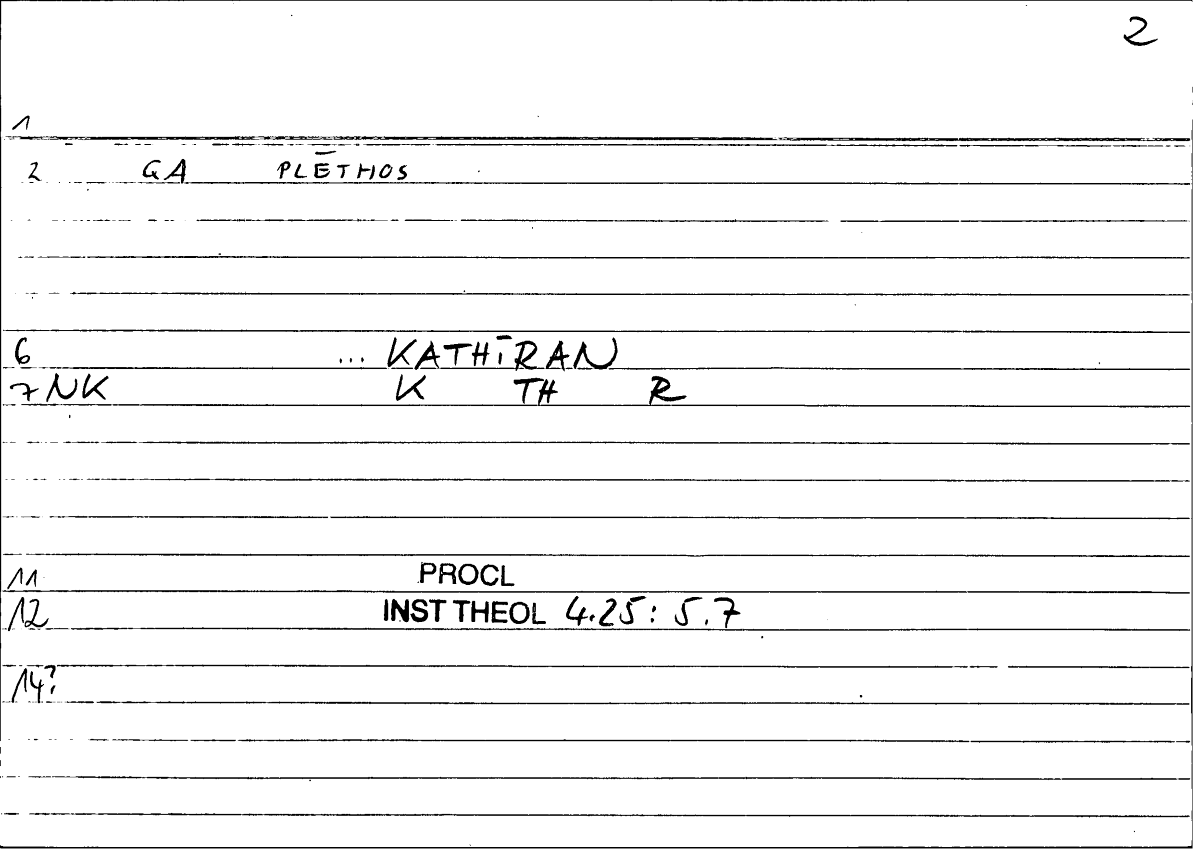 2
1
2 GA PLĒTHOS
6 ... KATHĪRAN
7 NK K TH R
11 PROCL
12 INST THEOL 4.25: 5.7
14?